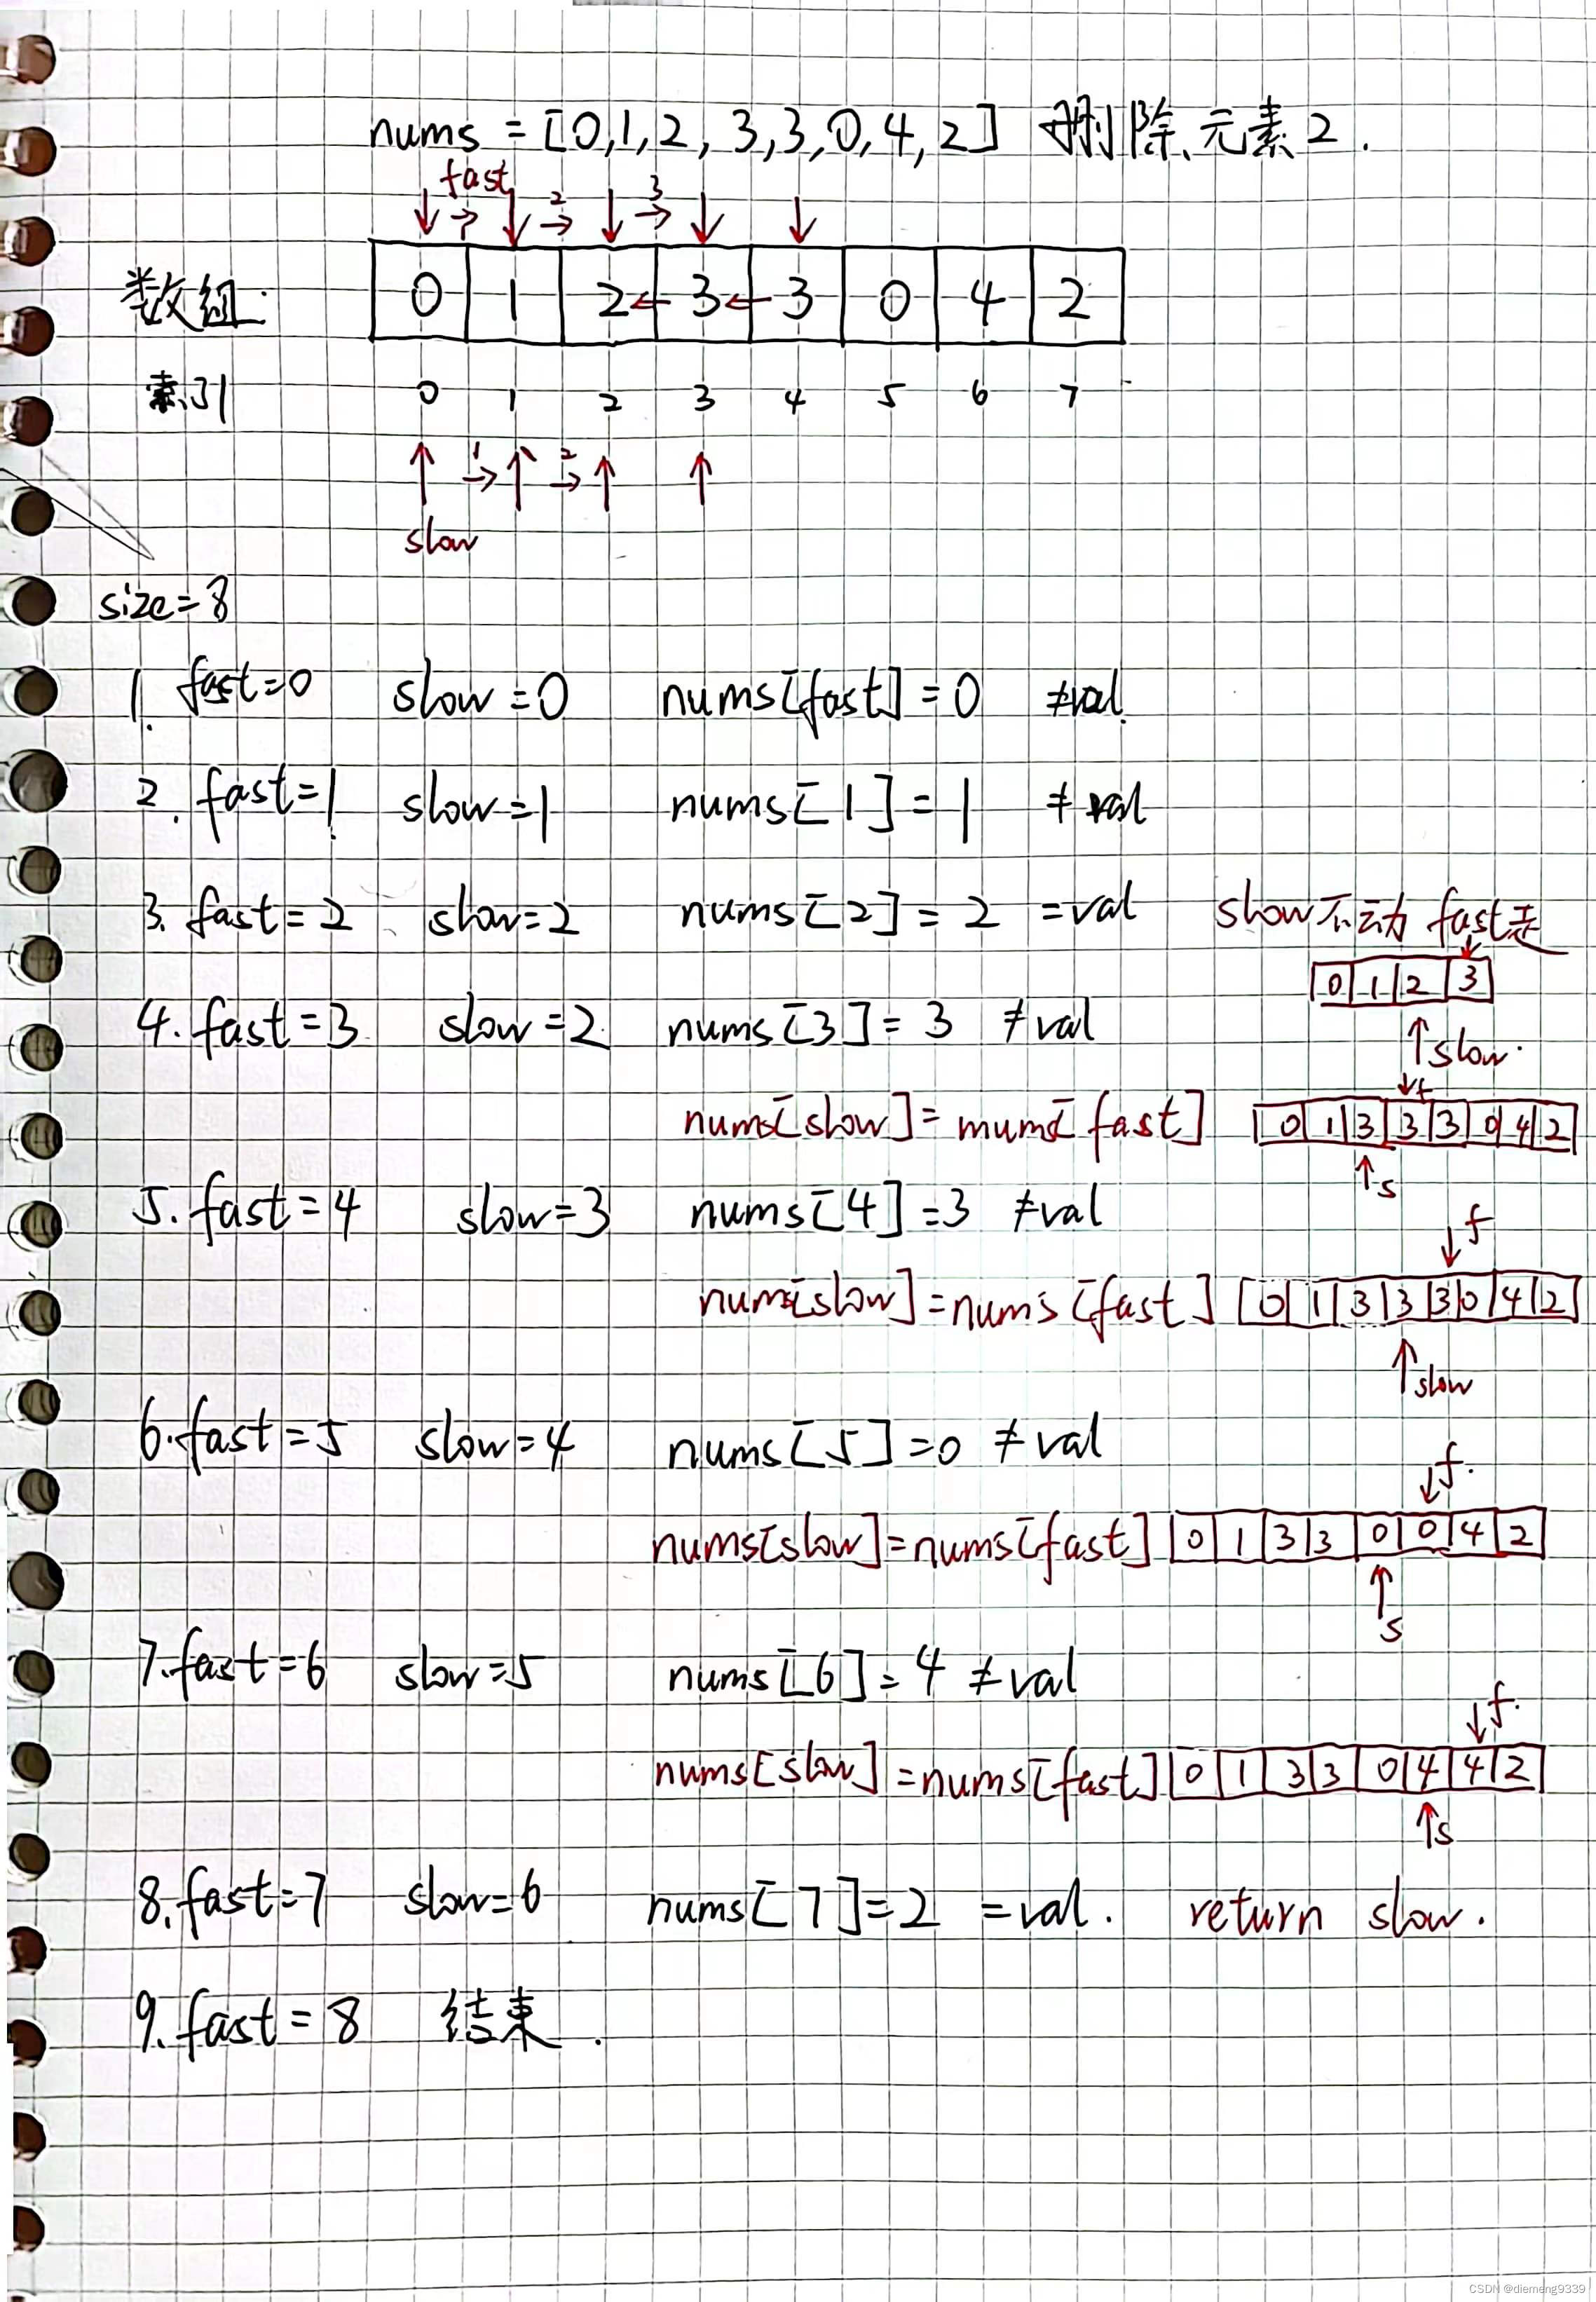 nums = [0,1,2,3,3,0,4,2] 删除元素2.
fast
→ 2→ 3→
数组 0 1 2 3 3 0 4 2
索引 0 1 2 3 4 5 6 7
1→ 2→
slow
size=8
1. fast=0 slow=0 nums[fast]=0 ≠val
2. fast=1 slow=1 nums[1]=1 ≠val
3. fast=2 slow=2 nums[2]=2 =val slow不动 fast走
0 1 2 3
4. fast=3 slow=2 nums[3]=3 ≠val
↑slow.
↓f
nums[slow]=nums[fast] 0 1 3 3 3 0 4 2
↑s
5. fast=4 slow=3 nums[4]=3 ≠val
↓f
nums[slow]=nums[fast] 0 1 3 3 3 0 4 2
↑slow
6. fast=5 slow=4 nums[5]=0 ≠val
↓f.
nums[slow]=nums[fast] 0 1 3 3 0 0 4 2
↑s
7. fast=6 slow=5 nums[6]=4 ≠val
↓f.
nums[slow]=nums[fast] 0 1 3 3 0 4 4 2
↑s
8. fast=7 slow=6 nums[7]=2 =val. return slow.
9. fast=8 结束.
CSDN @diemeng9339